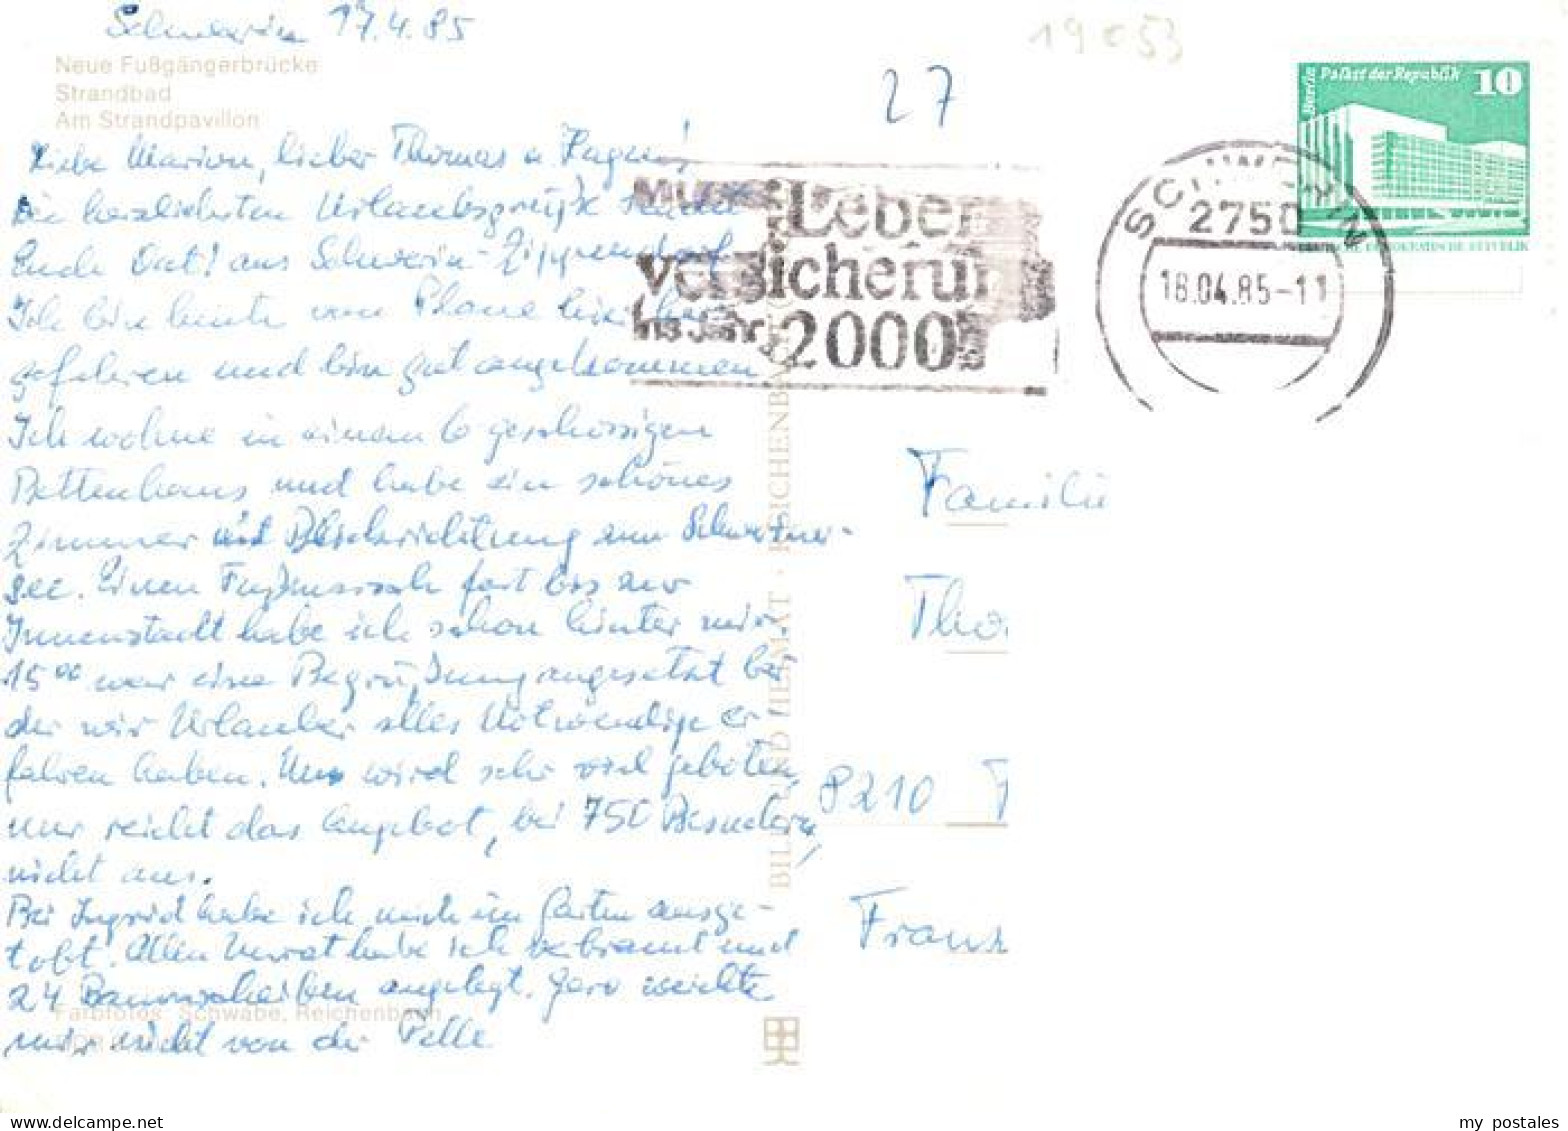 Schwerin 17.4.85
Neue Fußgängerbrücke
Strandbad
Am Strandpavillon
Liebe Marion, lieber Thomas u Hagen!
Die herzlichsten Urlaubsgrüße sendet
Euch Vati aus Schwerin-Zippendorf
Ich bin heute von Plaue hier her
gefahren und bin gut angekommen
Ich wohne in einem 6 geschossigen
Bettenhaus und habe ein schönes
Zimmer mit Blickrichtung zum Schweriner-
see. Einen Fußmarsch fast bis zur
Innenstadt habe ich schon hinter mir.
15 00 war eine Begrüßung angesetzt bei
der wir Urlauber alles Notwendige er-
fahren haben. Uns wird sehr viel geboten,
nur reicht das Angebot, bei 750 Besuchern,
nicht aus.
Bei Ingrid habe ich mich im Garten ausge-
tobt. Allen Unrat habe ich verbrannt und
24 Baumscheiben angelegt. Gero weichte
mir nicht von der Pelle
Farbfotos: Schwabe, Reichenbach
BILD UND HEIMAT · REICHENBA
27
19053
Leben
versicherun
ins Jahr 2000
SCHWERIN
2750
18.04.85-11
Berlin Palast der Republik 10
DEMOKRATISCHE REPUBLIK
Familie
Tho
8210 F
Franz
my postales